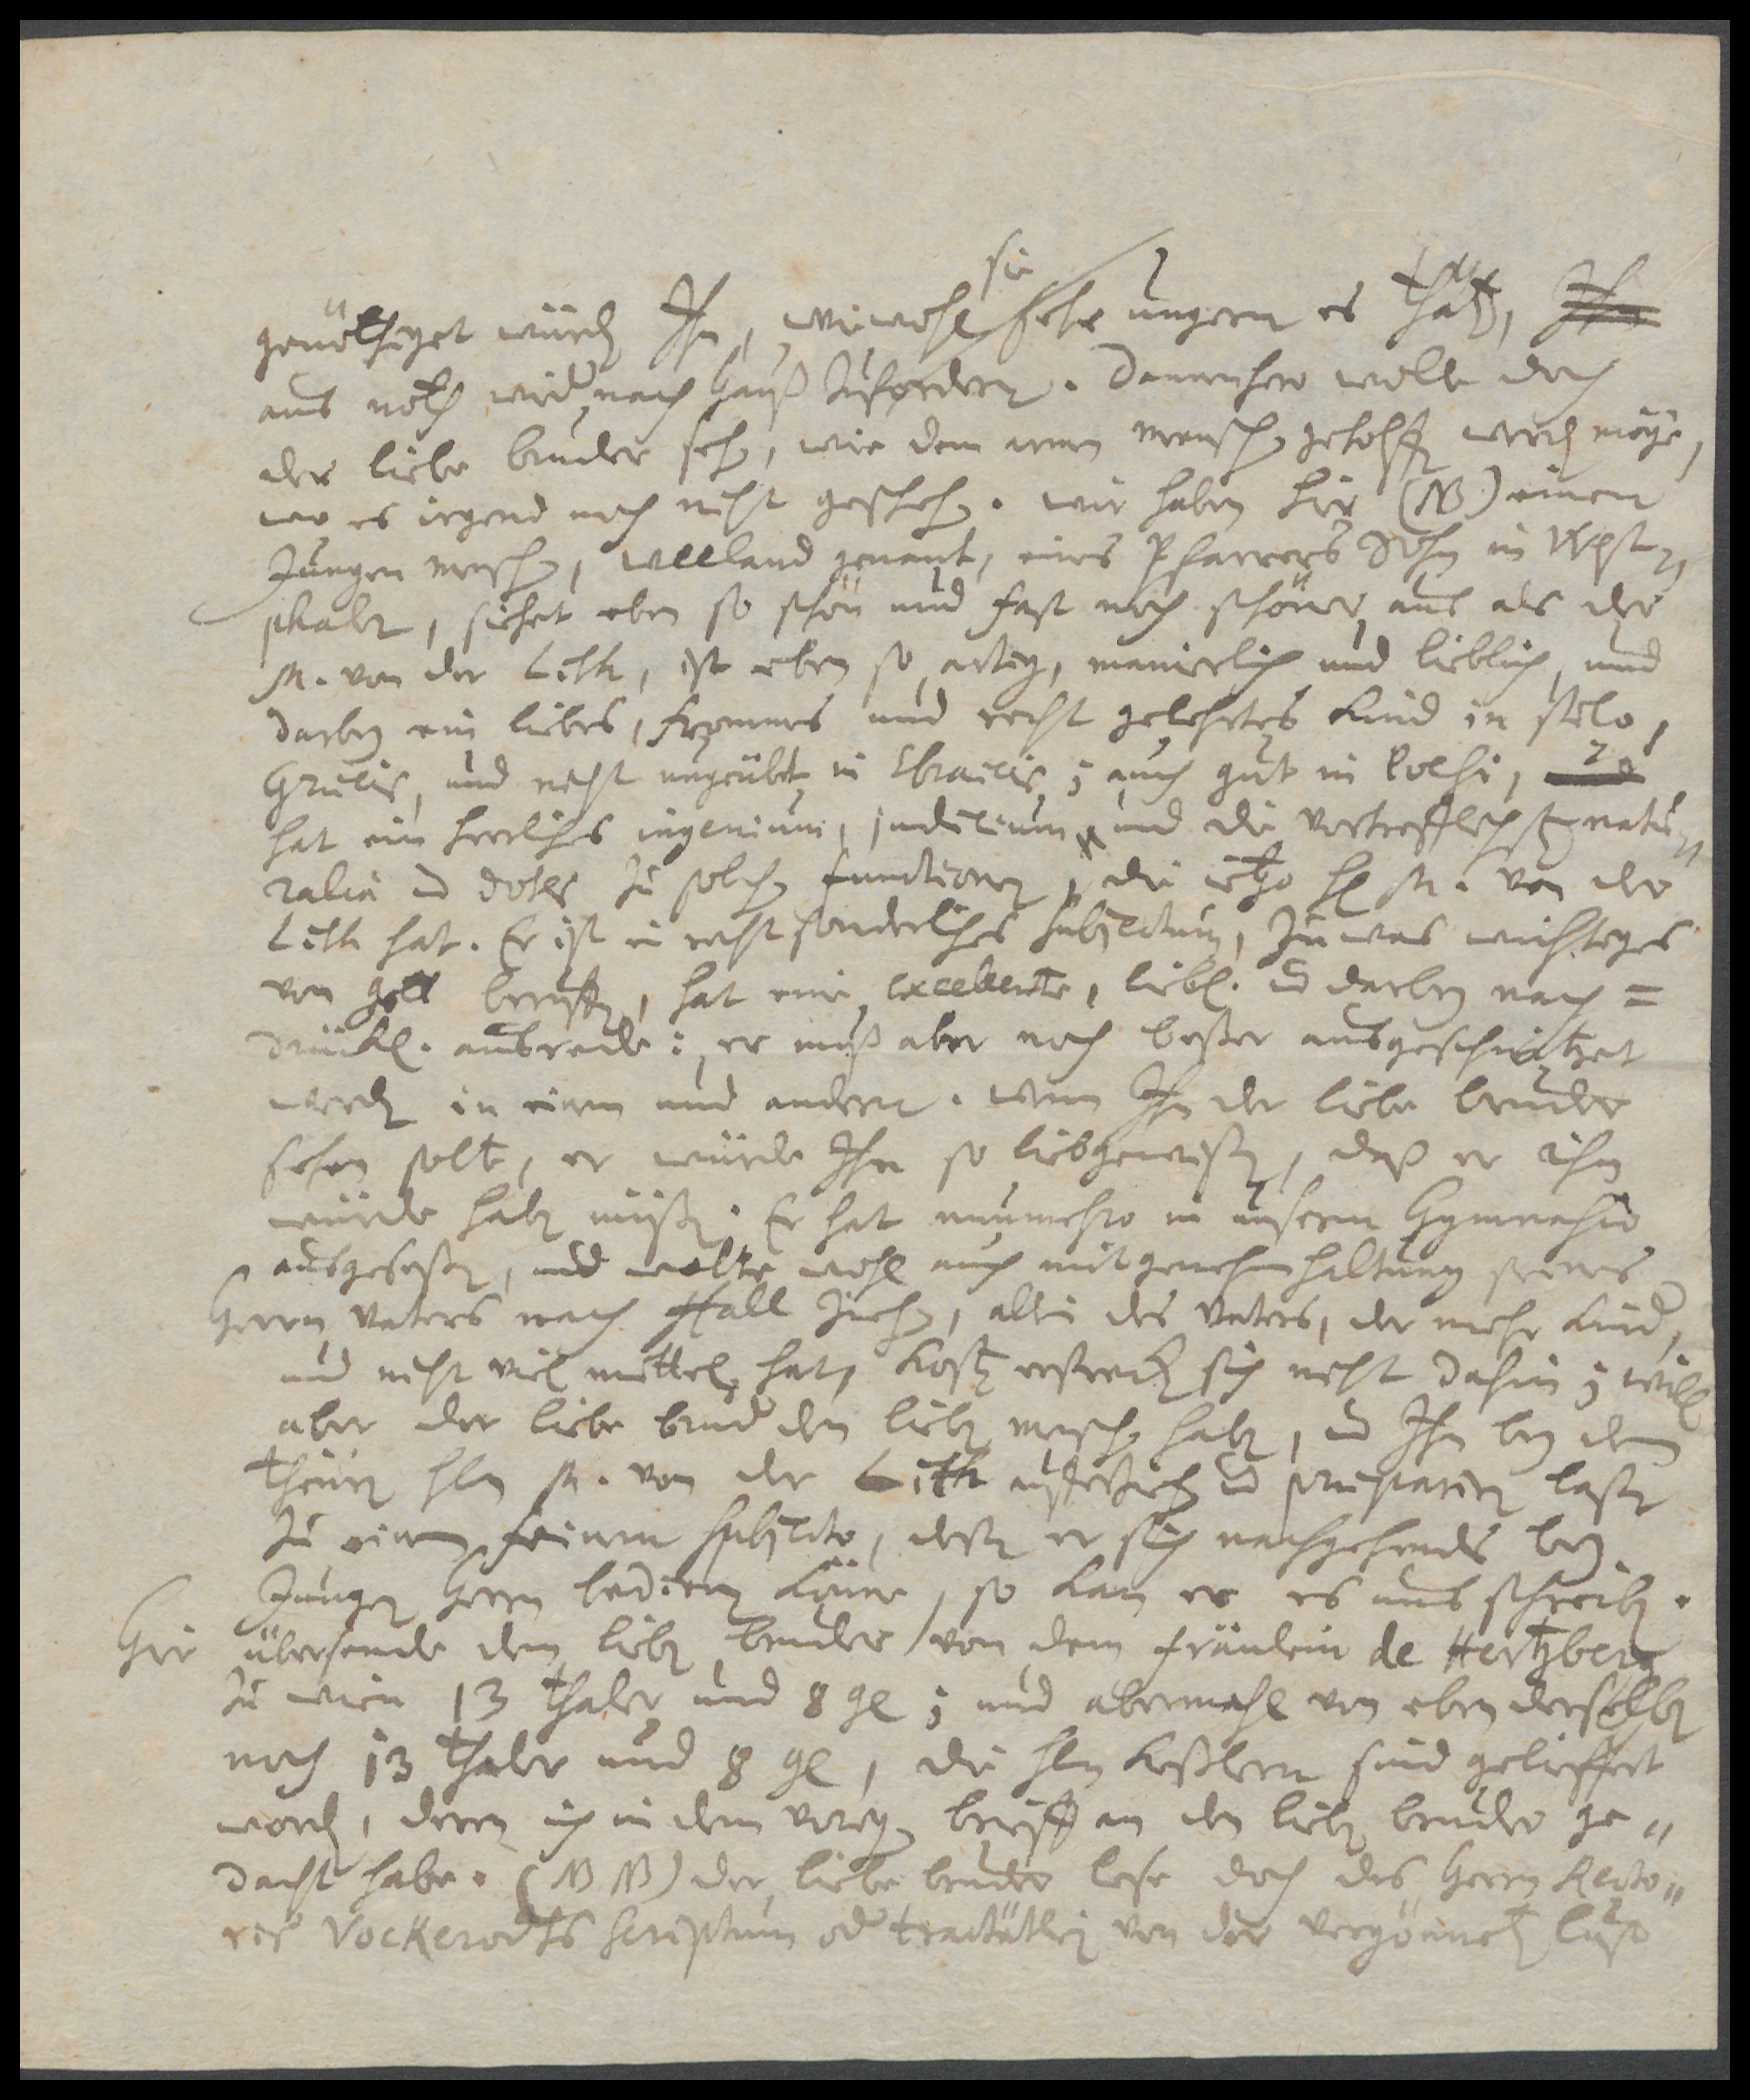 genöthiget würden Ihn, wiewohl sie sehr ungern es thäten,
aus noth wieder nach Hauß zufordern. Dannenhero wolle doch
der liebe bruder sehen, wie dem armen menschen geholffen werden möge,
wo es irgend noch nicht geschehen. wir haben hier (NB) einen
Jungen menschen, Weeland genant, eines Pfarrers Sohn in Westphalen,
siehet eben so schön und fast noch schöner aus als der
M. von der Lith, ist eben so artig, manierlich und lieblich, und
darbey ein liebes, frommes und recht gelehrtes Kind in stilo,
Græcis, und nicht ungeübt in Ebraicis; auch gut in Poesi,
hat ein herrliches ingenium, judicium und die vortrefflichsten natu-
ralia und dotes zu solchen functionen, die itzo H. M. von der
Lith hat. Er ist ein recht sonderliches subjectum, zu was wichtiges
von Gott beruffen, hat eine excellente, liebl. und darbey nach=
drückl. ausrede: er muß aber noch beßer ausgeschnitzet
werden in einem und andern. wenn Ihn der liebe bruder
sehen solte, er würde Ihn so liebgewinnen, daß er ihn
würde haben müßen. Er hat nunmehro in unserm Gymnasio
ausgeseßen, und wolte wohl auch mit genehmhaltung seines
Herrn Vaters nach Hall ziehen, allein des Vaters, der mehr Kinder,
und nicht viel mittel hat, Kosten erstrecken sich nicht dahin; will
aber der liebe bruder den lieben menschen haben, und Ihn bey dem
theuren Hln M. von der Lith auferziehen und præpariren laßen
zu einem feinen subjecto, deßen er sich nachgehends bey
Jungen Herrn bedienen könne, so kan er es uns schreiben.
Hier übersende dem lieben bruder von dem Fräulein de Hertzberg
zu wien 13 thaler und 8 gl; und abermahl von eben derselben
noch 13 thaler und 8 gl, die Hln Keßlern sind gelieffert
worden, deren ich in dem vorigen brieff an den lieben bruder ge-
dacht habe. (NB NB) der liebe bruder lese doch des Herrn Recto-
ris Vockerodts scriptum oder tractätlein von der vergönneten Lust